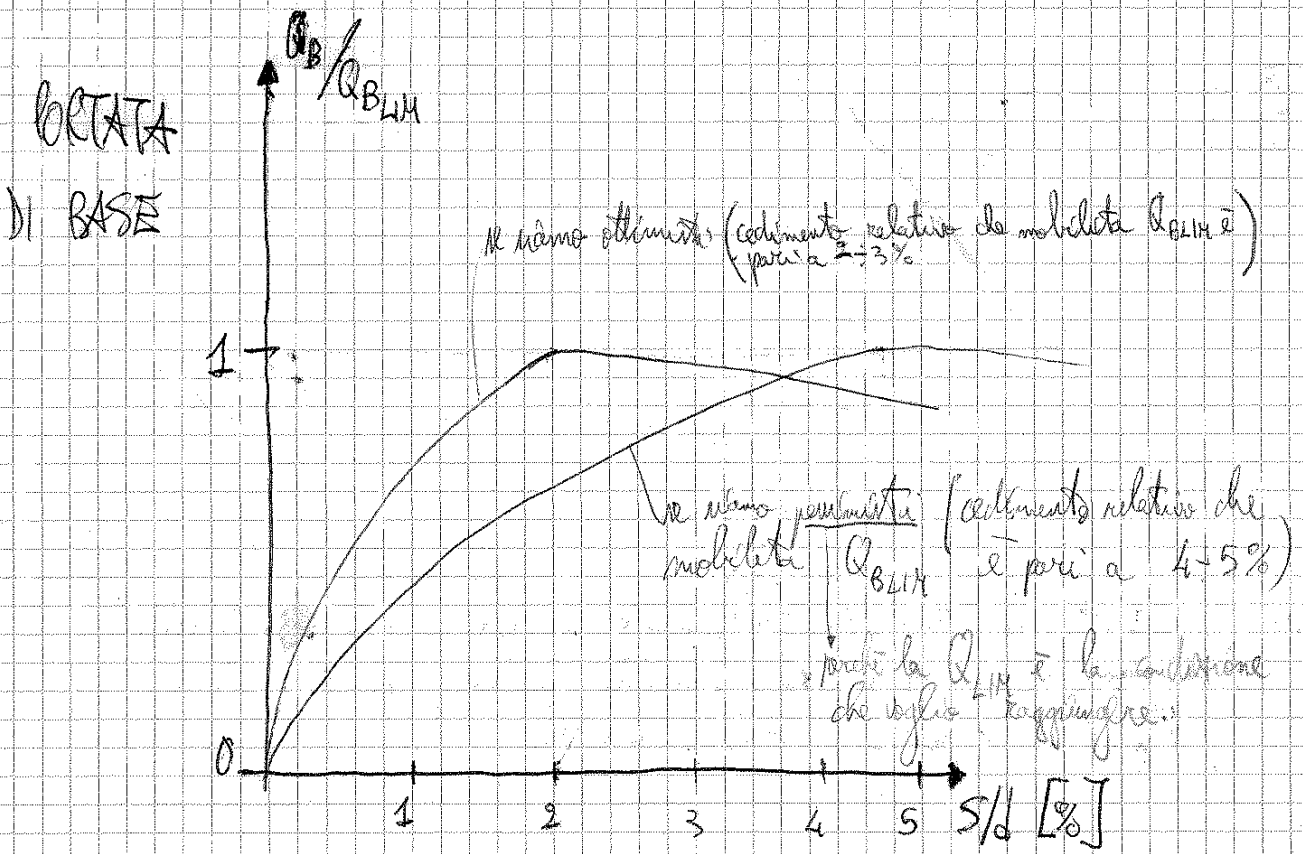 PORTATA
DI BASE
Q_B/Q_BLIM
se siamo ottimisti (cedimento relativo che mobilita Q_BLIM è
pari a 2÷3%)
1
se siamo pessimisti (cedimento relativo che
mobilita Q_BLIM è pari a 4÷5%)
perché la Q_LIM è la condizione
che voglio raggiungere.
0
1 2 3 4 5 S/d [%]